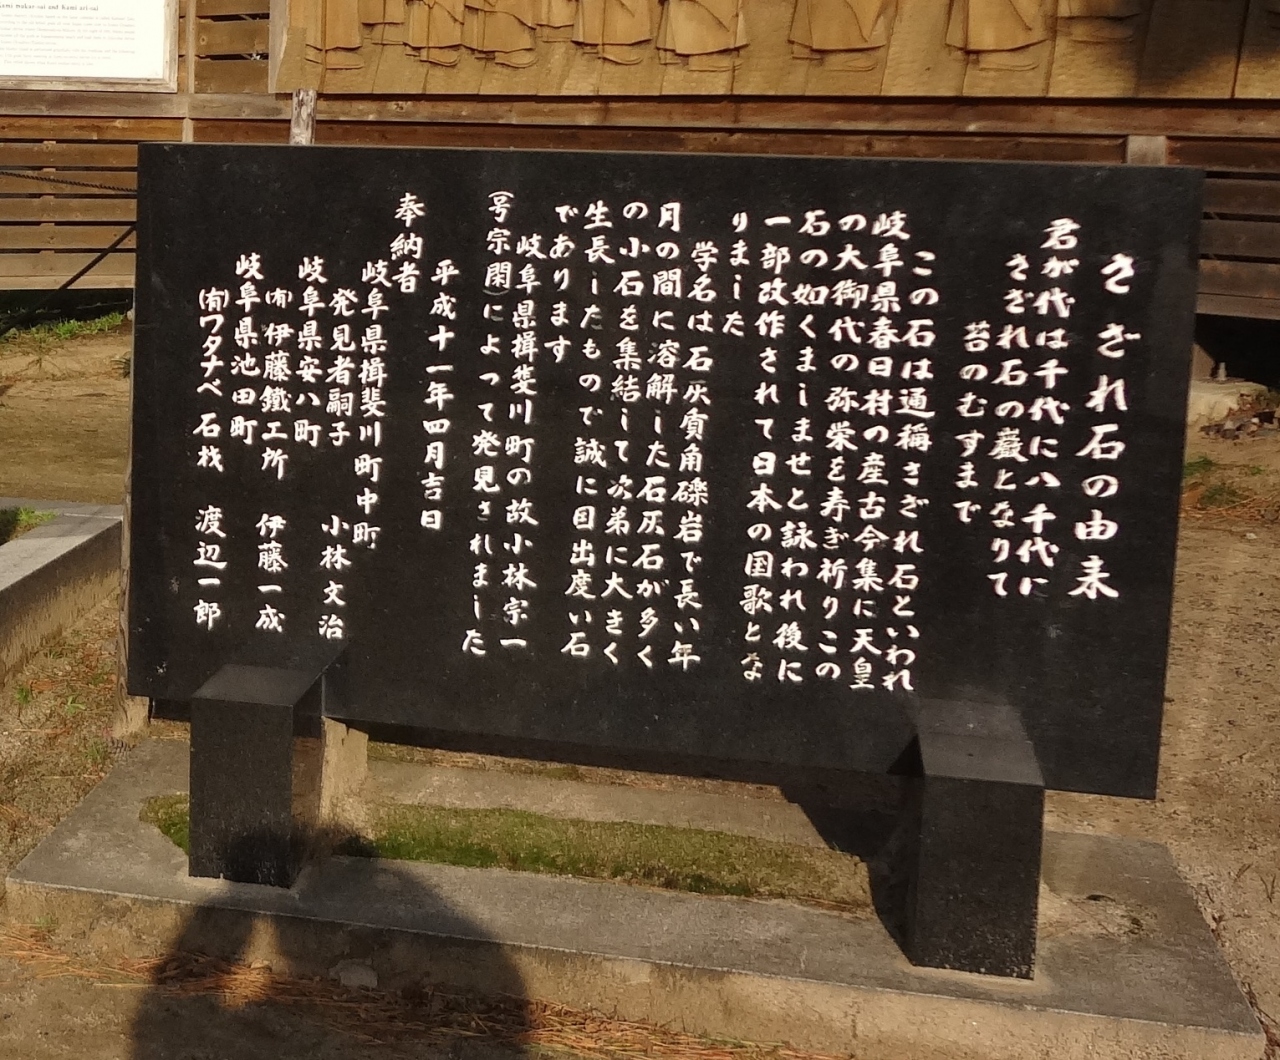 Kami mukae-sai and Kami ari-sai
さざれ石の由来
君が代は千代に八千代に
さざれ石の巌となりて
苔のむすまで
この石は通稱さざれ石といわれ
岐阜県春日村の産古今集に天皇
の大御代の弥栄を寿ぎ祈りこの
石の如くましませと詠われ後に
一部改作されて日本の国歌とな
りました
学名は石灰质角礫岩で長い年
月の間に溶解した石灰石が多く
の小石を集結して次第に大きく
生長したもので誠に目出度い石
であります
岐阜県揖斐川町の故小林宗一
(号宗閑)によって発見されました
平成十一年四月吉日
奉納者
岐阜県揖斐川町中町
発見者嗣子 小林文治
岐阜県安八町
㈲伊藤鐵工所 伊藤一成
岐阜県池田町
㈲ワタナベ石材 渡辺一郎